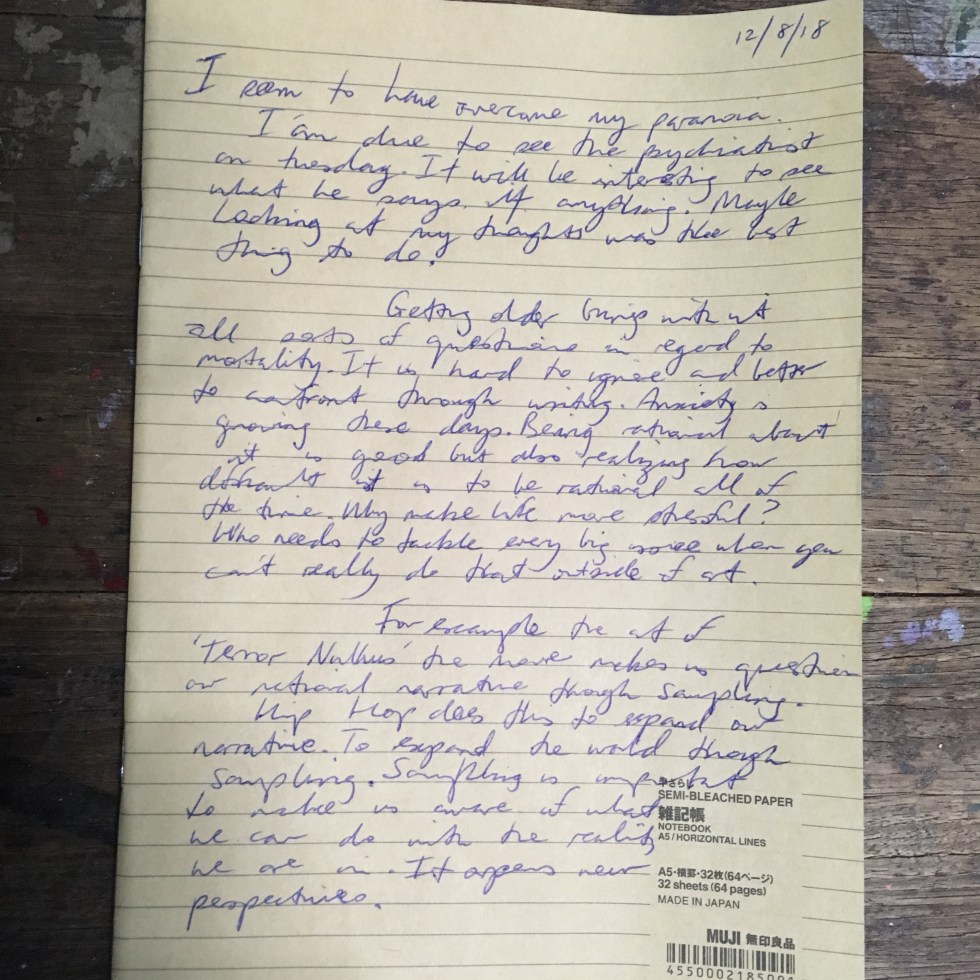 12/8/18
I seem to have overcome my paranoia.
I am due to see the psychiatrist
on tuesday. It will be interesting to see
what he says. If anything. Maybe
Looking at my thoughts was the best
thing to do.
Getting older brings with it
all sorts of questions in regard to
mortality. It is hard to ignore and better
to confront through writing. Anxiety is
growing these days. Being rational about
it is good but also realizing how
difficult it is to be rational all of
the time. Why make life more stressful?
Who needs to tackle every big issue when you
can't really do that outside of art.
For example the art of
'Terror Nullius' the movie makes us question
our national narrative though Sampling.
Hip Hop does this to expand our
narrative. To expand the world though
Sampling. Sampling is important
to make us aware of what
we can do with the reality
we are in. It opens new
perspectives.
SEMI-BLEACHED PAPER
雑記帳
NOTEBOOK
A5/HORIZONTAL LINES
A5・横罫・32枚(64ページ)
32 sheets (64 pages)
MADE IN JAPAN
MUJI 無印良品